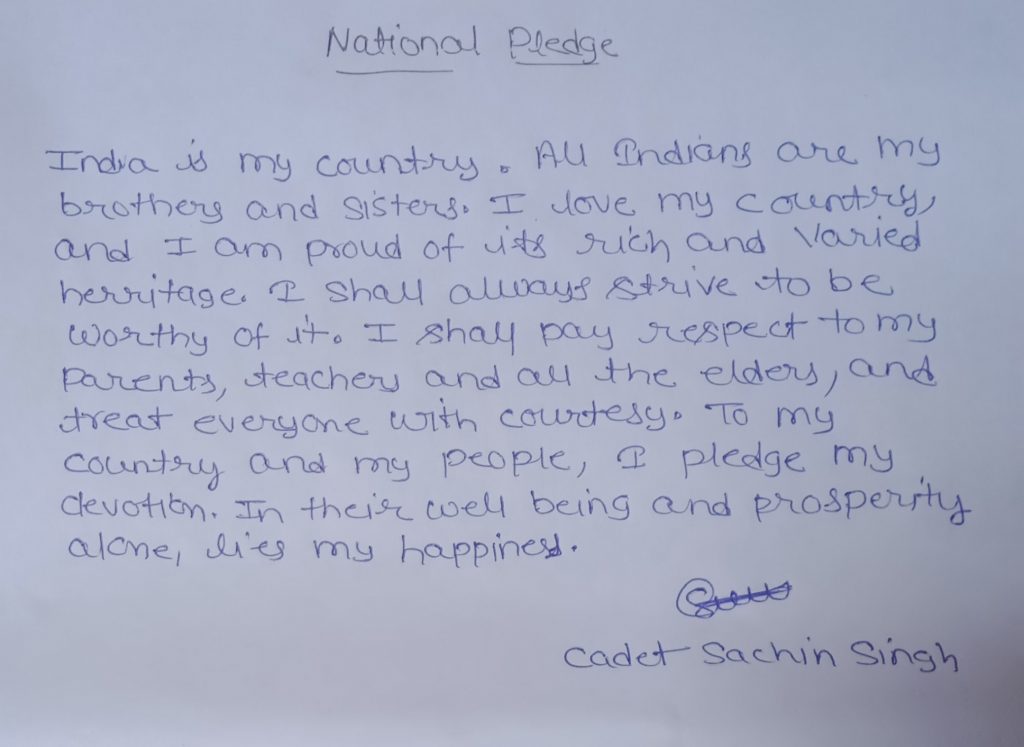 National Pledge
India is my country. All Indians are my
brothers and sisters. I love my country,
and I am proud of its rich and varied
herritage. I shall always strive to be
worthy of it. I shall pay respect to my
parents, teachers and all the elders, and
treat everyone with courtesy. To my
country and my people, I pledge my
devotion. In their well being and prosperity
alone, lies my happiness.
Cadet Sachin Singh